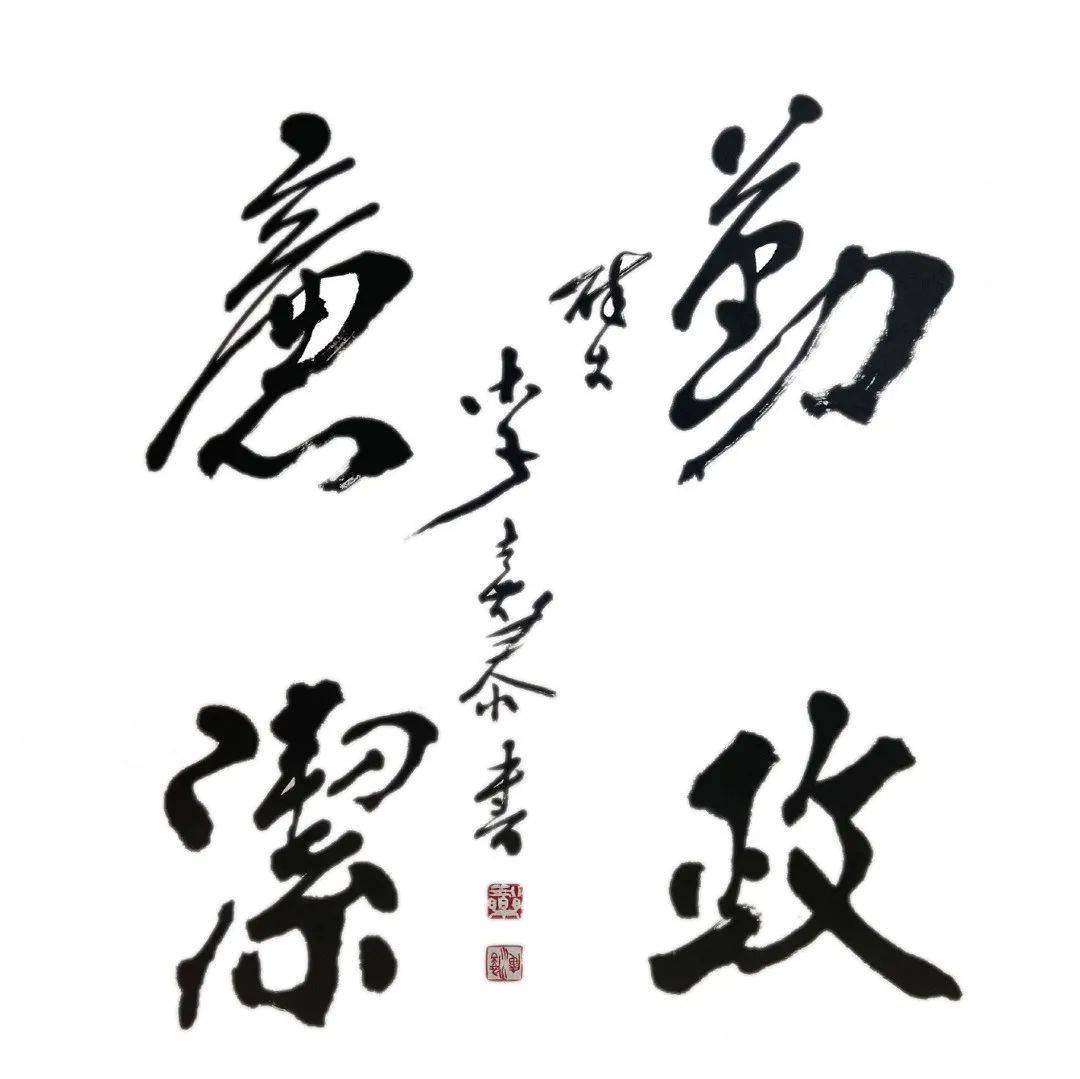 勤政
廉潔
李
書